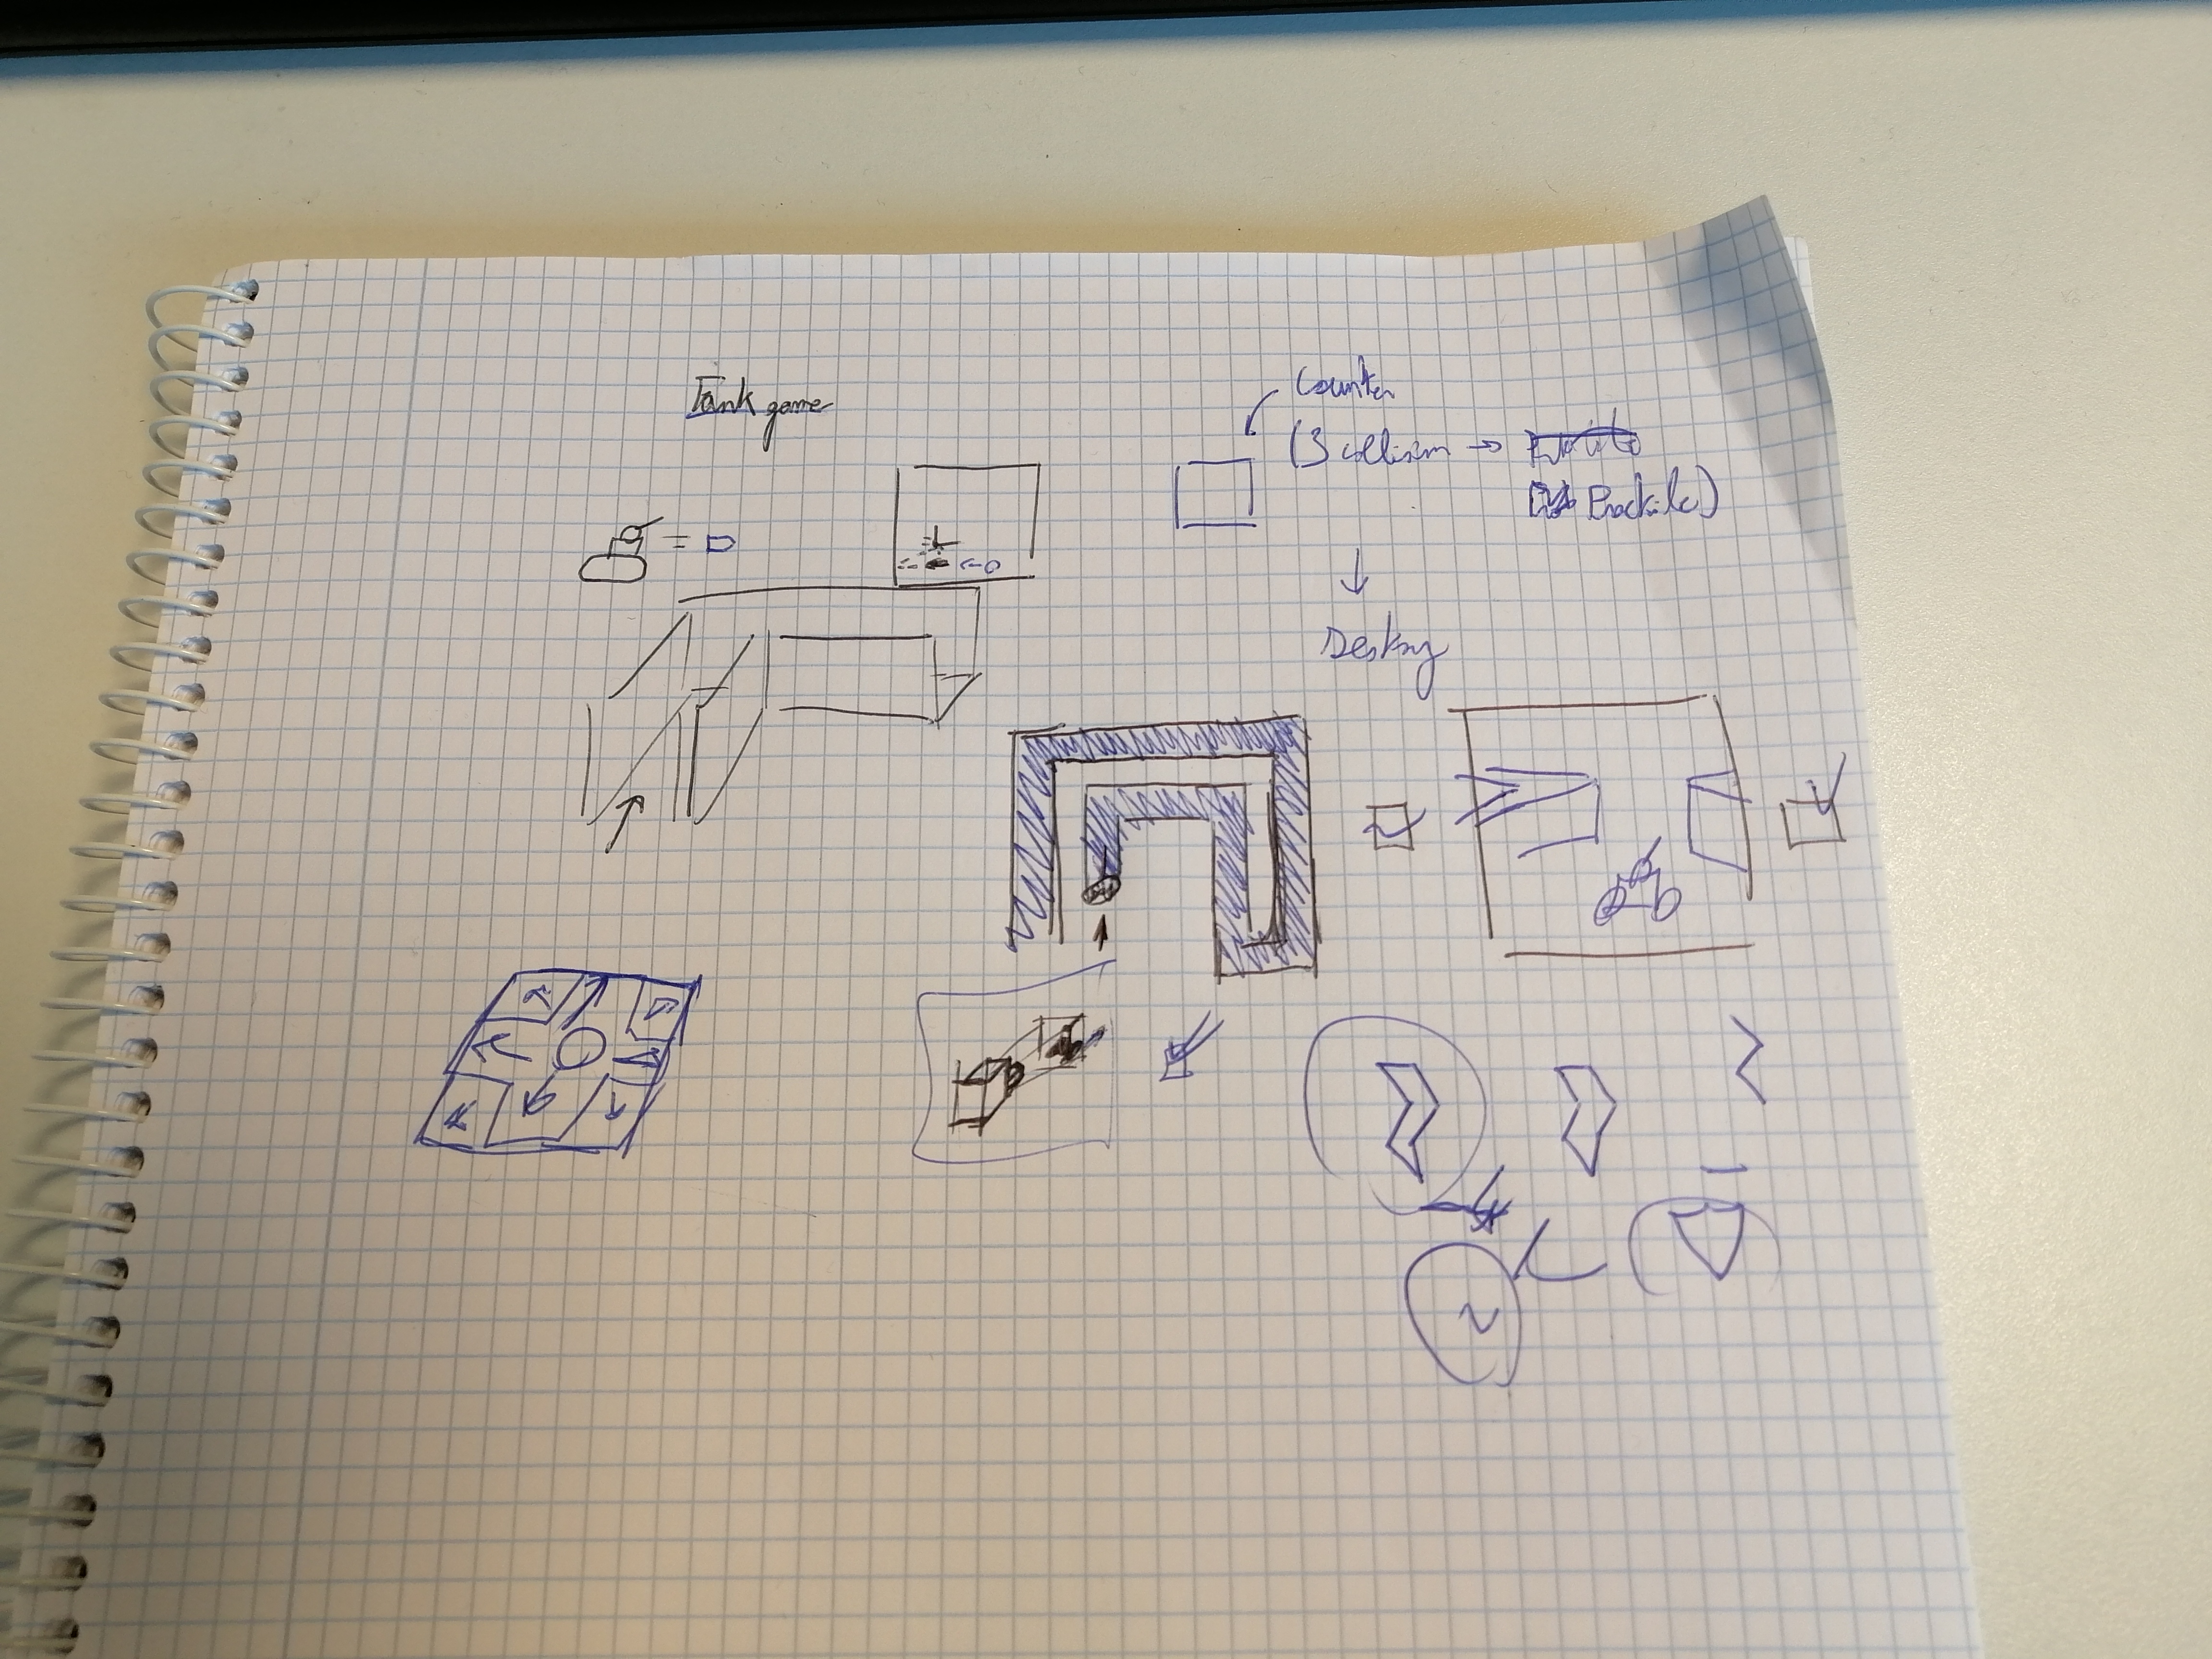 Tank game
Counter
(3 collision →
Proctile)
Destroy